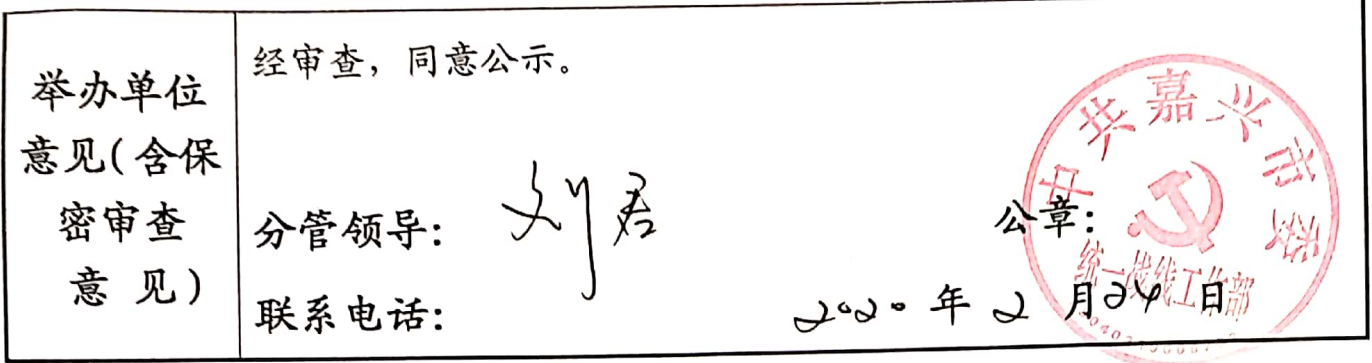 举办单位
意见(含保
密审查
意 见)
经审查，同意公示。
分管领导: 刘君
公章:
联系电话:
2020 年 2 月 24 日
中共嘉兴市委
统一战线工作部